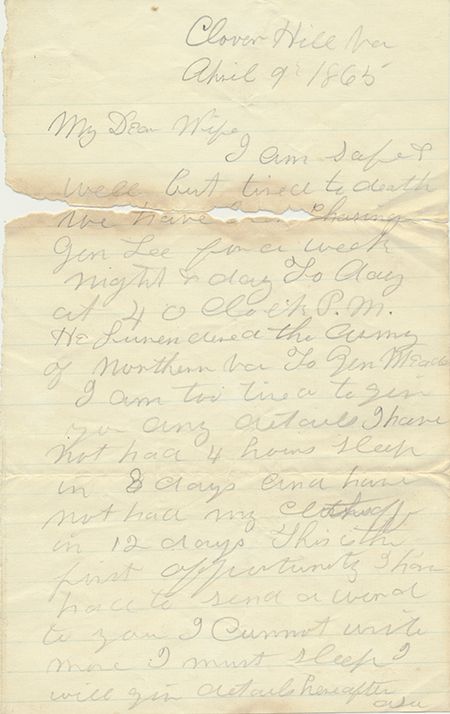 Clover Hill Va
April 9th 1865
My Dear Wife
I am safe &
well but tired to death
we have been chasing
Gen Lee for a week
night & day To day
at 4 O Clock P.M.
He Surrendered the Army
of Northern Va To Gen Meade
I am too tired to give
you any details I have
not had 4 hours sleep
in 8 days and have
not had my clothes off
in 12 days This is the
first oppertunity I have
had to send a word
to you I Cannot write
more I must sleep I
will give details hereafter